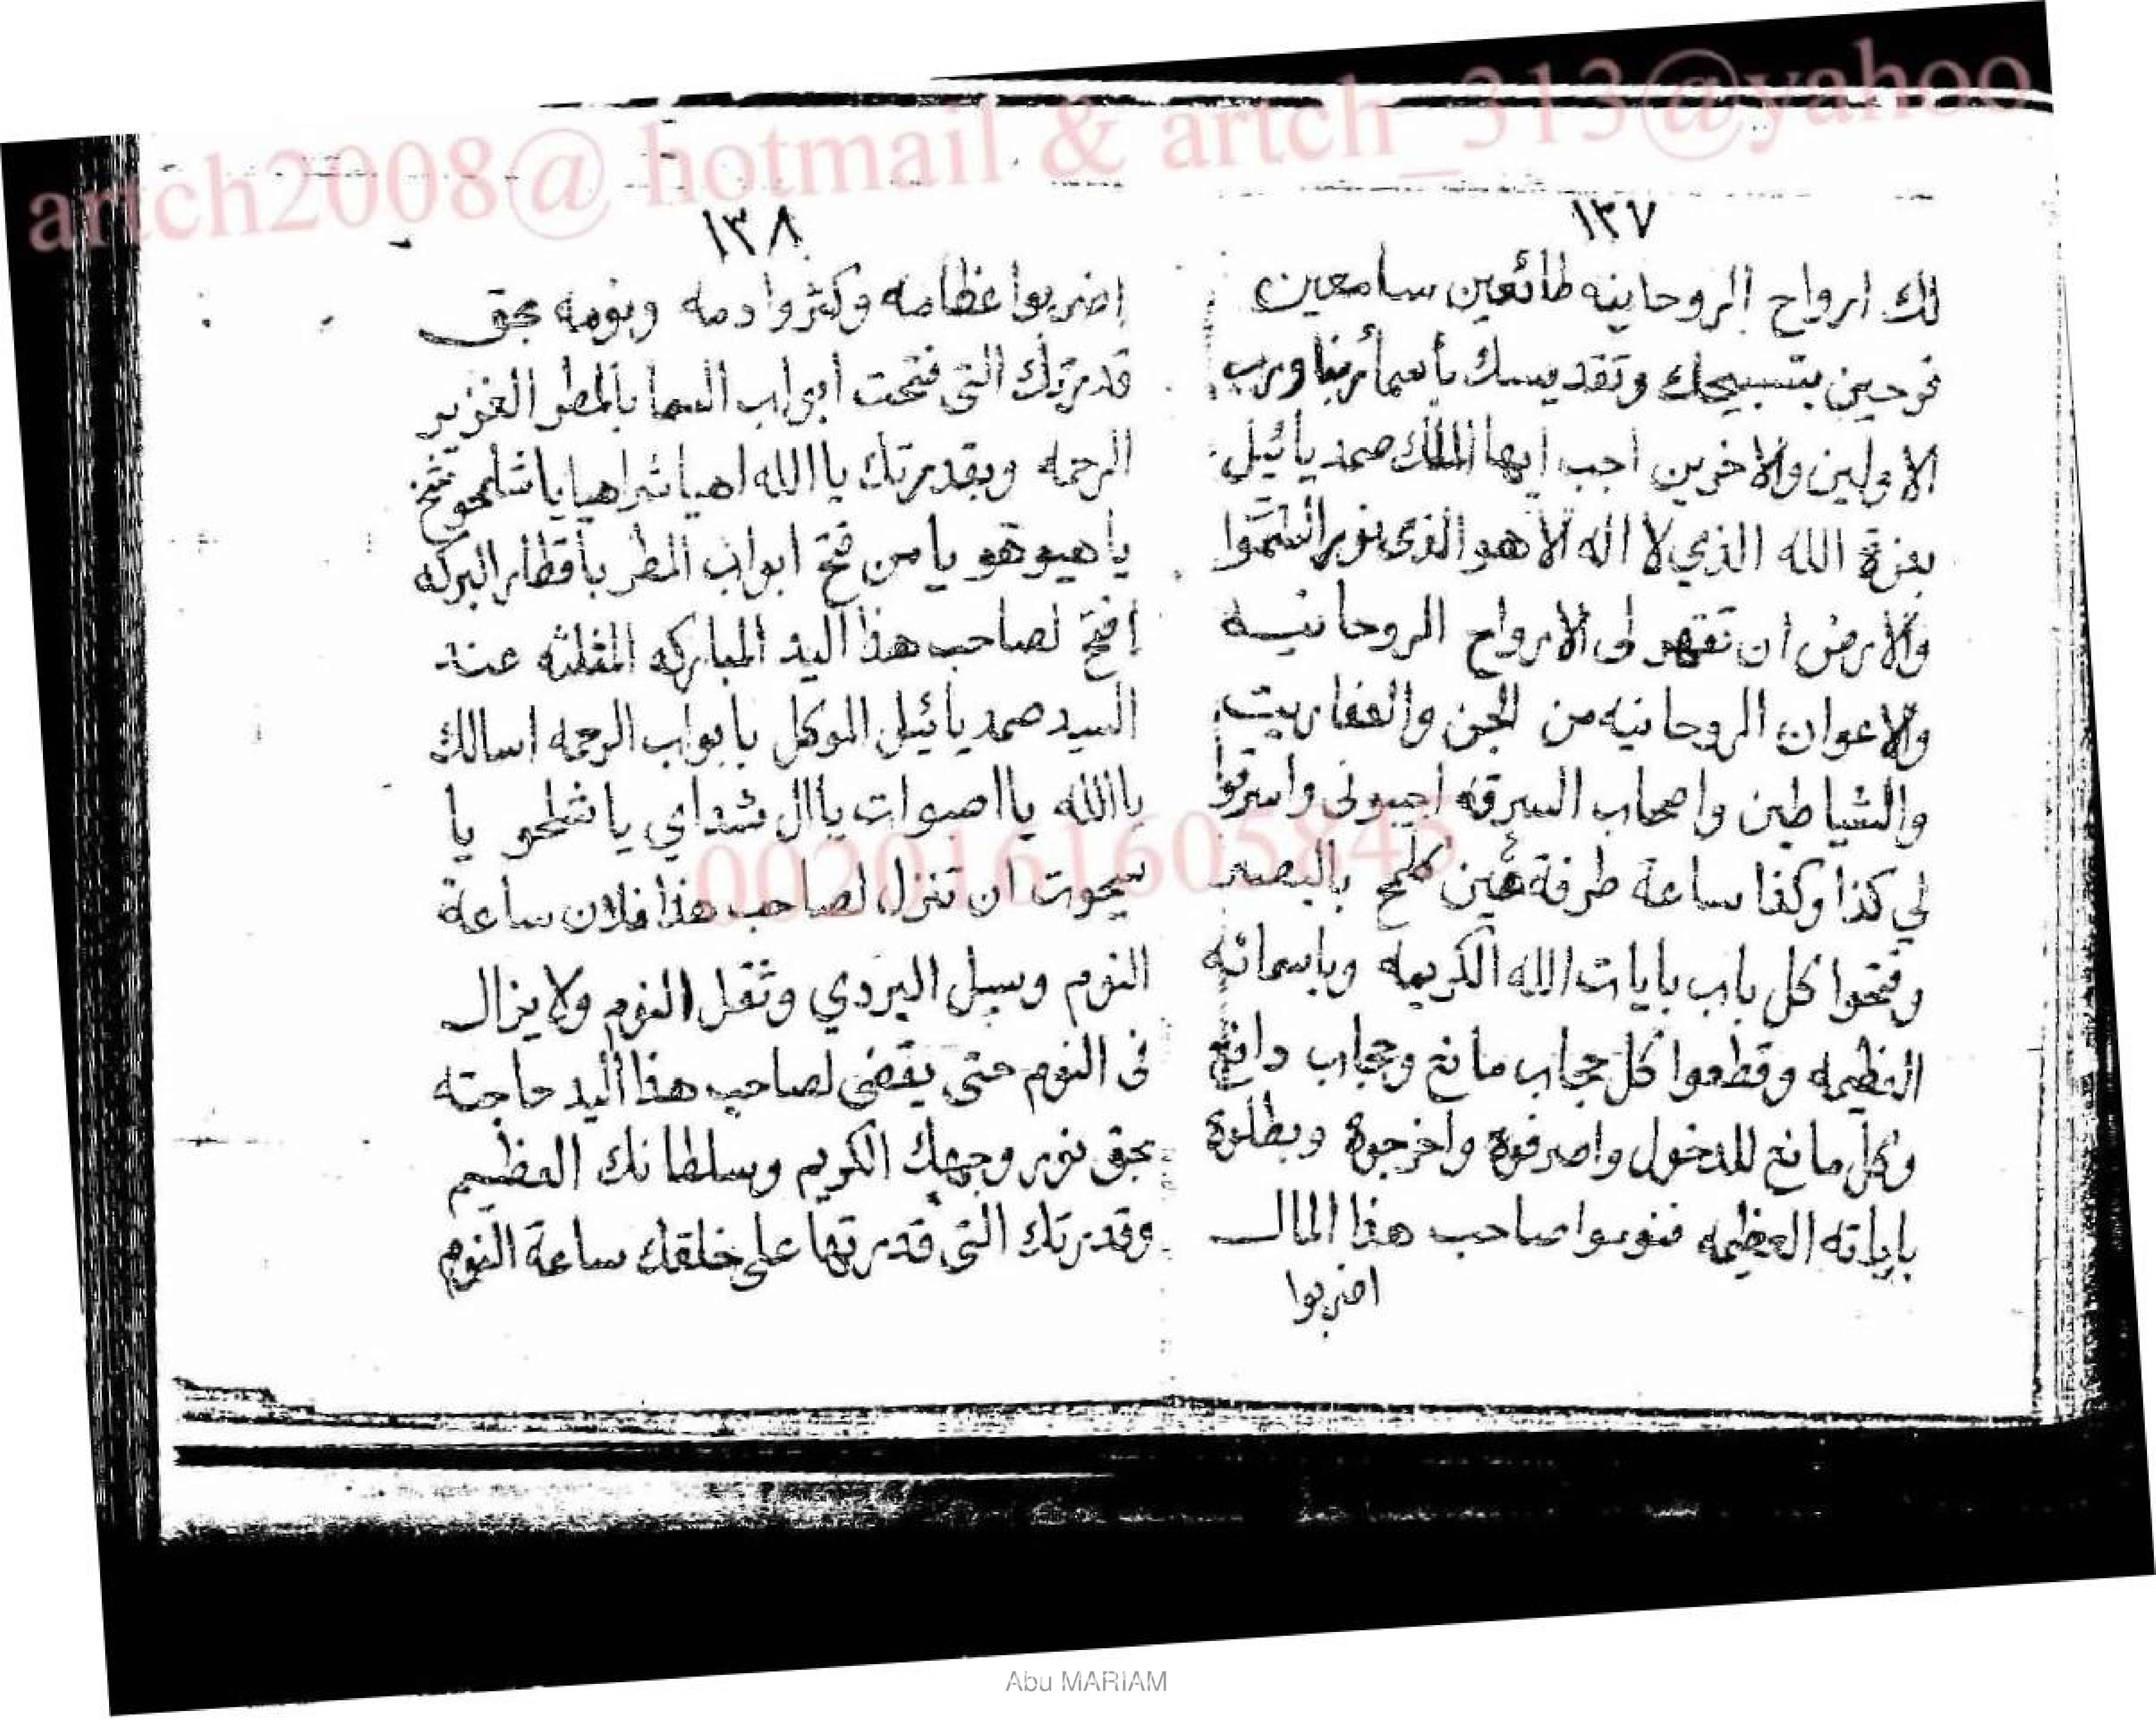 artch2008@ hotmail & artch_313@yahoo
١٣٧
لك ارواح الروحانيه طائعين سامعين
فرحين بتسبيحك وتقديسك بأسمأ ربنا ورب
الاولين والاخرين اجب ايها الملك صمديائيل
بعزة الله الذي لا اله الا هو الذى نور السموا
والارض ان تقهر لى الارواح الروحانيه
والاعوان الروحانيه من الجن والعفاريت
والشياطين واصحاب السرقه اجيبونى واسرقوا
لي كذا وكذا ساعة طرفة عين كلمح بالبصر
وفتحوا كل باب بايات الله الكريمه وباسمائه
العظيمه وقطعوا كل حجاب مانع وحجاب دافع
وكل مانع للدخول واصرفوة واخرجوة وبطلوة
باياته العظيمه فنوموا صاحب هذا المال
اضربوا
١٣٨
اضربوا عظامه وكثروا دمه ونومه بحق
قدرتك التى فتحت ابواب السما بالمطر الغزير
الرحمه وبقدرتك يا الله اهيا شراهيا يا شلمحو
يا هيوهو يا من فتح ابواب المطر بأقطار البركه
افتح لصاحب هذا اليد المباركه المثلثه عند
السيد صمديائيل الموكل بابواب الرحمه اسالك
يا الله يا اصبوات يا ال شداي يا شلمحو يا
ان تنزل لصاحب هذا فلان ساعة
النوم وسبل البردي وثقل النوم ولا يزال
فى النوم حتى يقضى لصاحب هذا اليد حاجته
بحق نور وجهك الكريم وسلطانك العظيم
وقدرتك التى قدرتها على خلقك ساعة النوم
0020161605845
Abu MARIAM